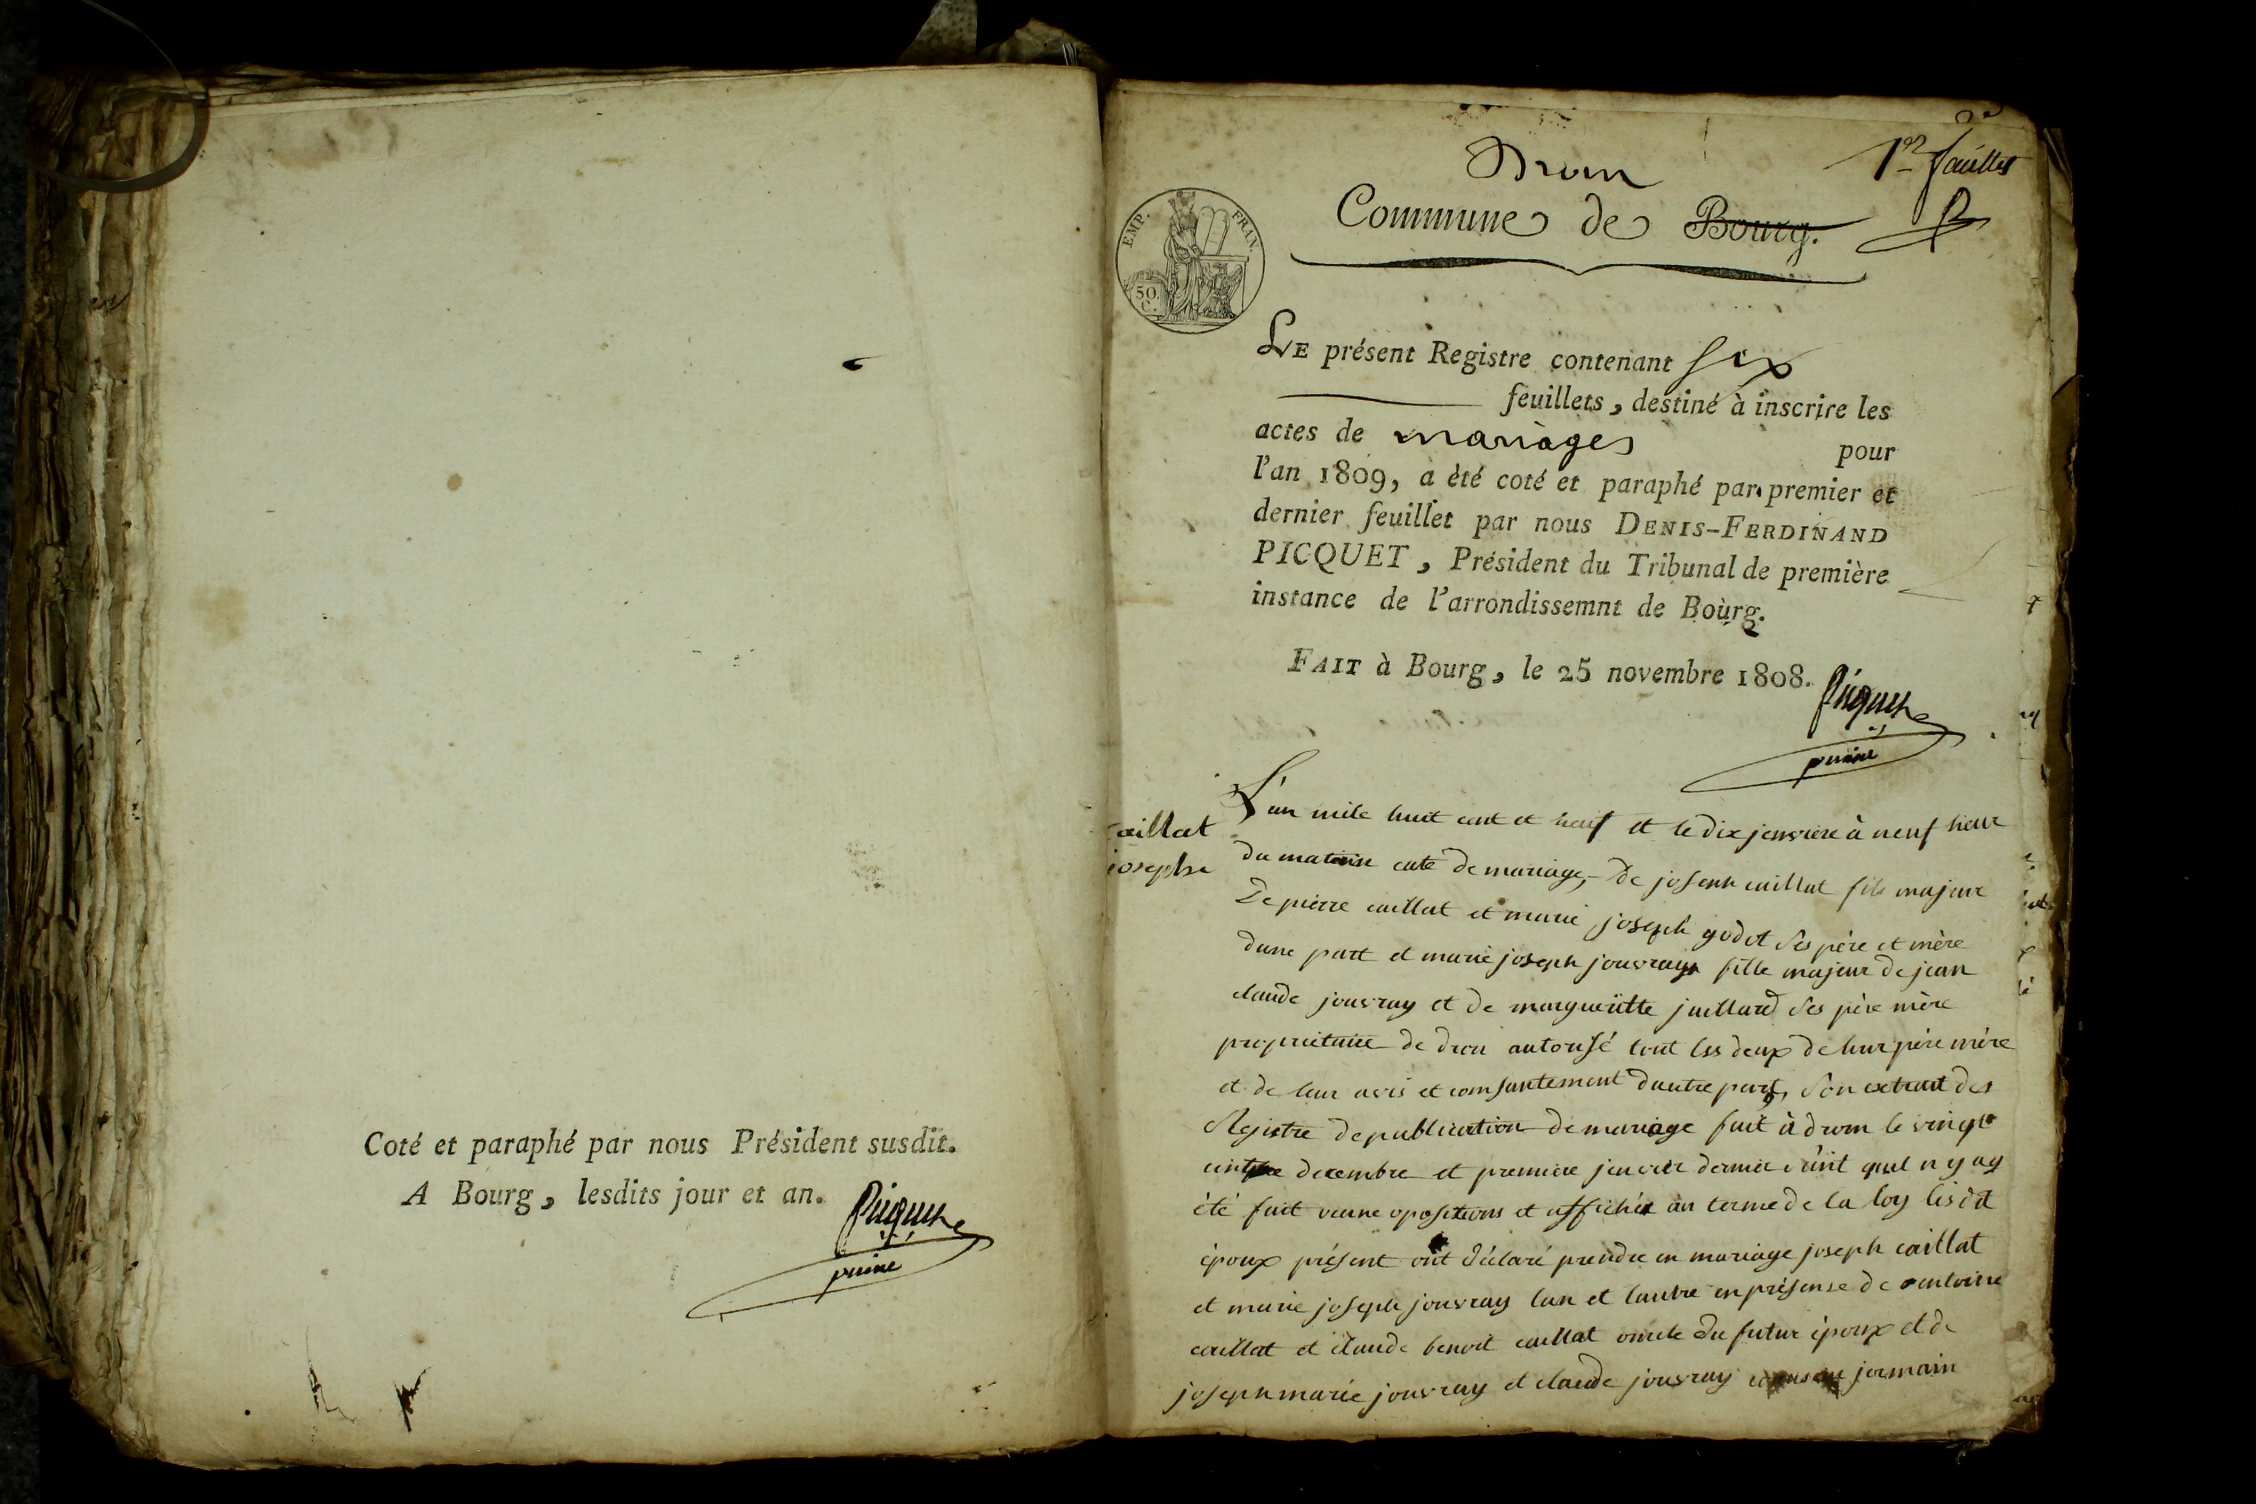 Coté et paraphé par nous Président susdit.
A Bourg, lesdits jour et an.
Picquet
1er feuillet
Drom
Commune de Bourg.
EMP. FRAN.
50.
C.
LE présent Registre contenant six
feuillets, destiné à inscrire les
actes de mariages pour
l'an 1809, a été coté et paraphé par premier et
dernier feuillet par nous DENIS-FERDINAND
PICQUET, Président du Tribunal de première
instance de l'arrondissemnt de Bourg.
FAIT à Bourg, le 25 novembre 1808.
Picquet
caillat
joseph
L'an mile huit cent et neuf et le dix jenviere à neuf heur
du matin acte de mariage, De joseph caillat fils majeur
De pierre caillat et marie joseph godet ses père et mère
dune part et marie joseph jouvray fille majeur de jean
claude jouvray et de margueritte juillard ses père mère
proprietaire de drom autorisé tout les deux de leur père mère
et de leur avis et consantement dautre part, son extrait des
Registre de publication de mariage fait à drom le vingt
decembre et premiere jenvier dernier quel n y ay
été fait opositions et affichés au terme de la loy lesdit
époux présent ont déclaré prendre en mariage joseph caillat
et marie joseph jouvray lun et lautre en présense de antoine
caillat et claude benoit caillat oncle du futur époux et de
joseph marie jouvray et claude jouvray jermain